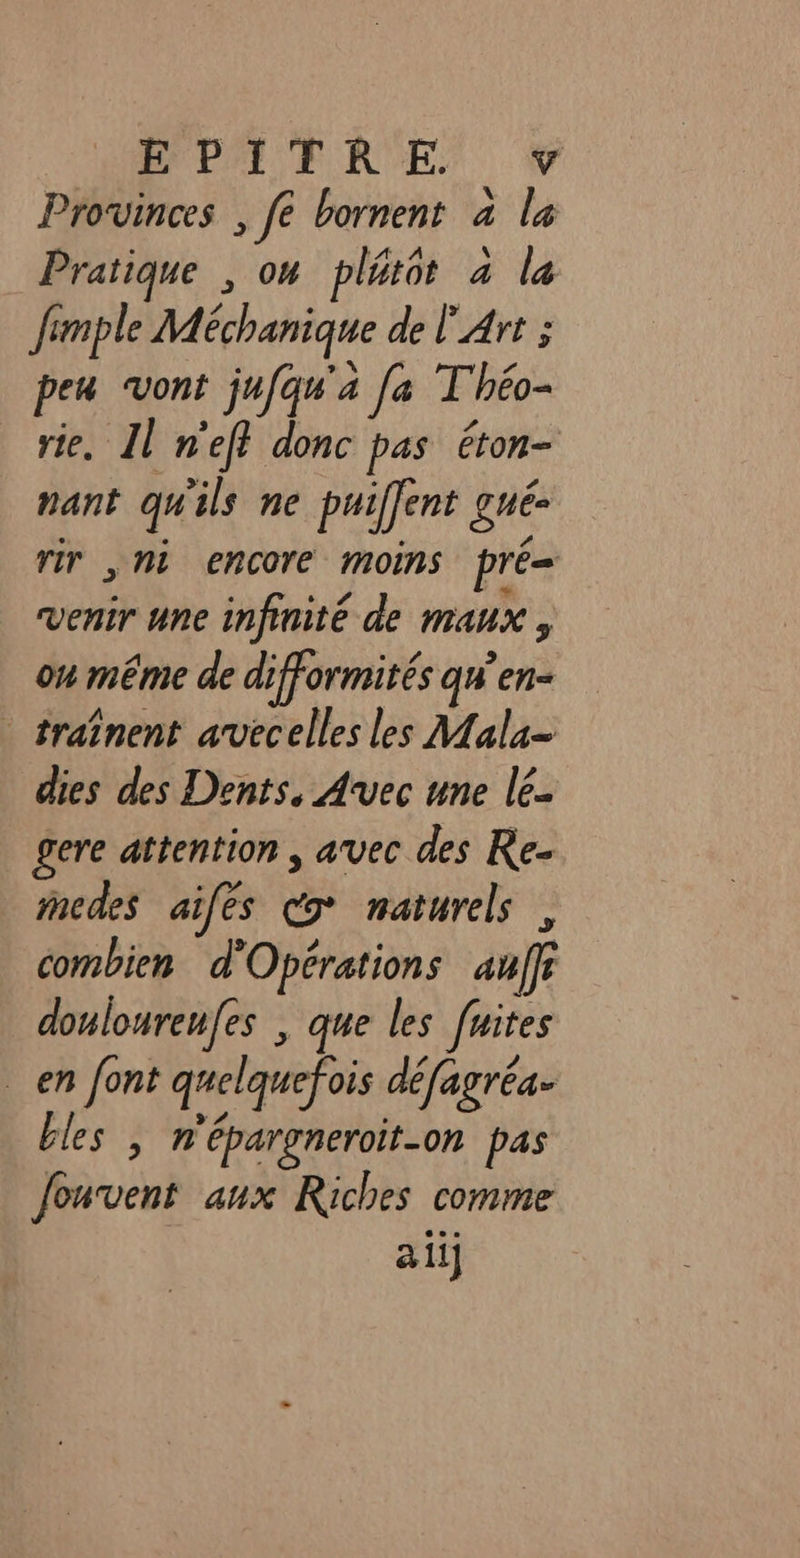 EPITRE. v
Provinces , ſe bornent à la
Pratique , ou plûtôt à la
ſimple Méchanique de l'Art ;
peu vont juſqu'à ſa Théo-
rie. Il n'eſt donc pas éton-
nant qu'ils ne puiſſent gué-
rir , ni encore moins pré-
venir une infinité de maux ,
ou même de difformités qu'en-
traînent avec elles les Mala-
dies des Dents. Avec une lé-
gere attention , avec des Re-
medes aiſés & naturels ,
combien d'Opérations auſſi
douloureuſes , que les ſuites
en ſont quelquefois déſagréa-
bles , n'épargneroit-on pas
ſouvent aux Riches comme
aiij